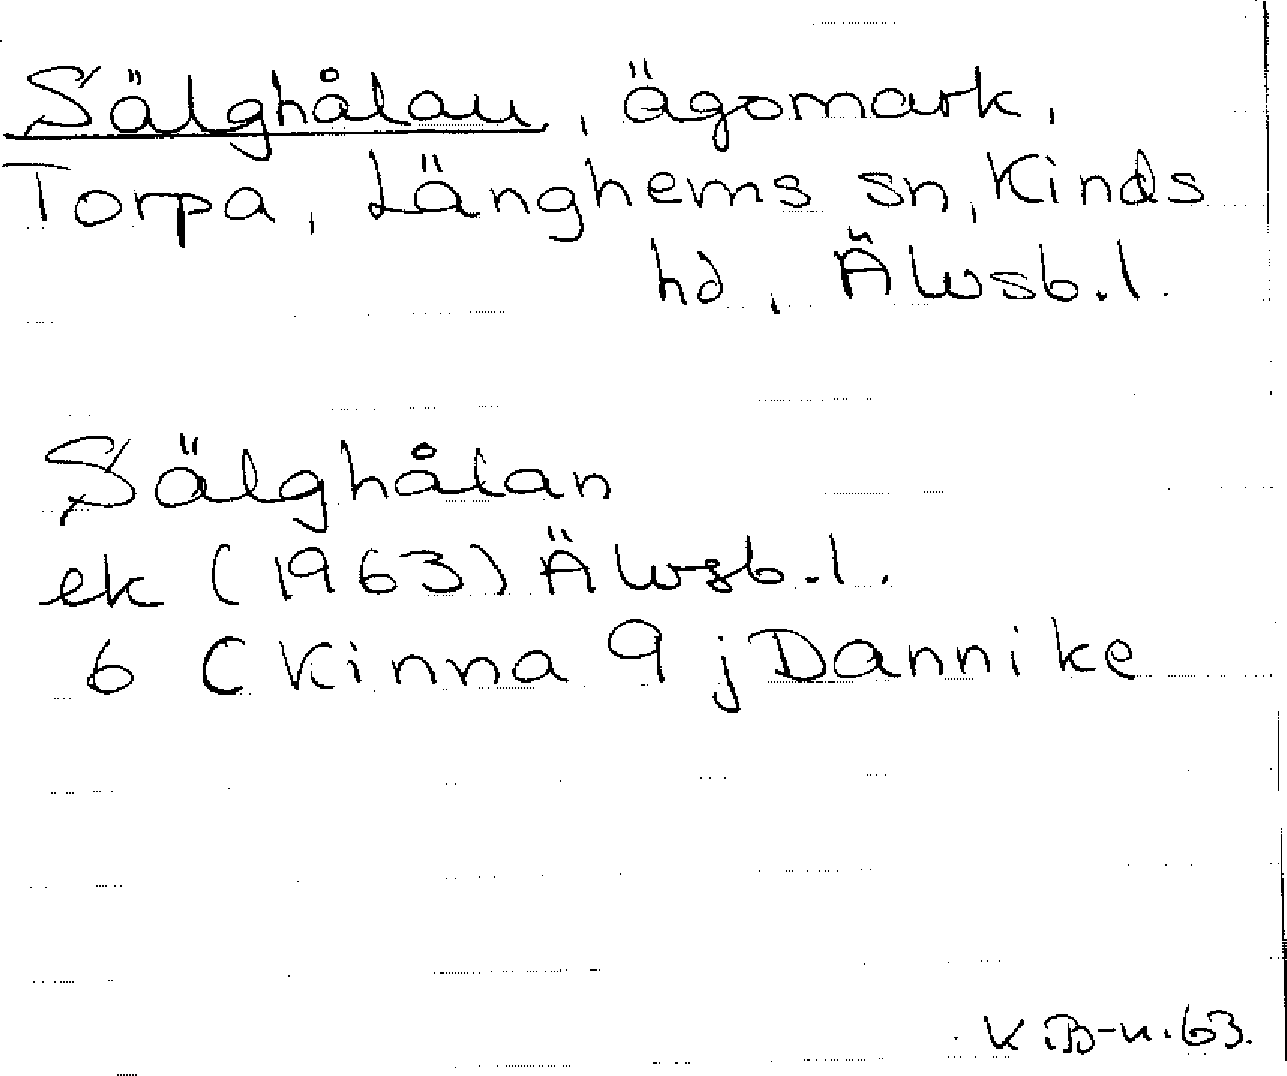 Sälghålan, ägomark,
Torpa, Länghems sn, Kinds
hd, Älvsb.l.
Sälghålan
ek (1963) Älvsb.l.
6 C Kinna 9 j Dannike
K.B-n.63.